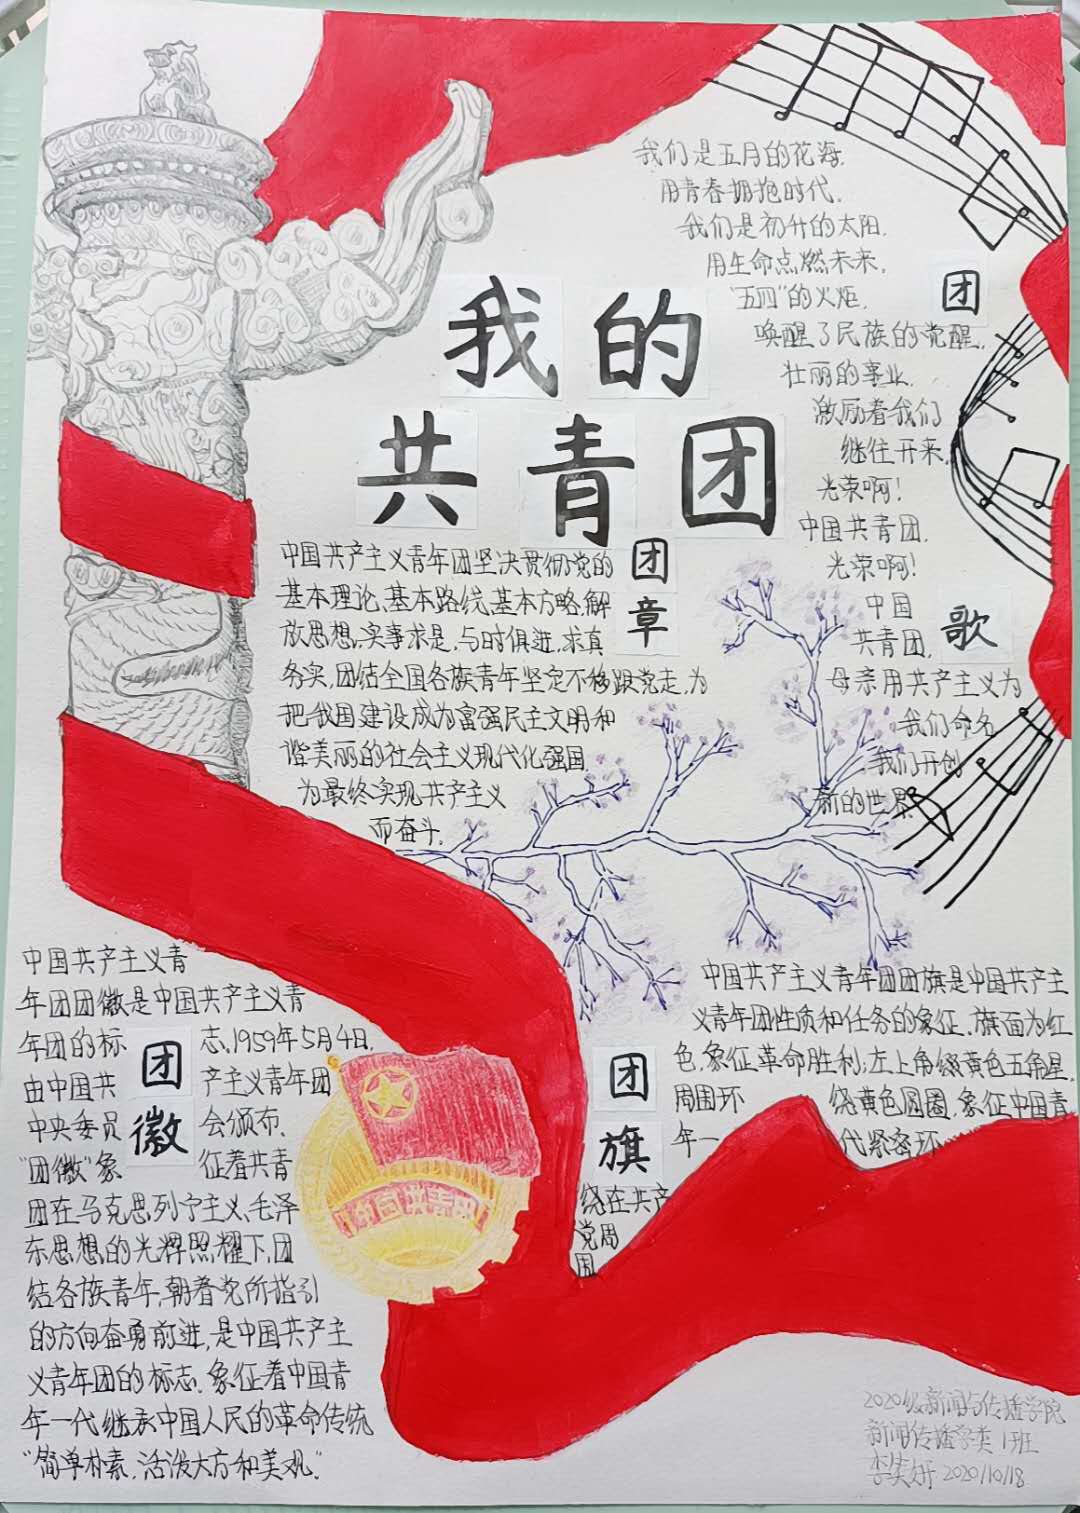 我的
共青团
我们是五月的花海，
用青春拥抱时代，
我们是初升的太阳，
用生命点燃未来，
"五四"的火炬，
唤醒了民族的觉醒，
壮丽的事业，
激励着我们
继往开来，
光荣啊！
中国共青团，
光荣啊！
中国
共青团，
母亲用共产主义为
我们命名
我们开创
新的世界
团
歌
团
章
中国共产主义青年团坚决贯彻党的
基本理论、基本路线、基本方略，解
放思想，实事求是，与时俱进，求真
务实，团结全国各族青年坚定不移跟党走，为
把我国建设成为富强民主文明和
谐美丽的社会主义现代化强国
为最终实现共产主义
而奋斗。
中国共产主义青
年团团徽是中国共产主义青
年团的标 志，1959年5月4日，
由中国共 产主义青年团
中央委员 会颁布，
"团徽"象 征着共青
团在马克思列宁主义、毛泽
东思想的光辉照耀下，团
结各族青年，朝着党所指引
的方向奋勇前进，是中国共产主
义青年团的标志，象征着中国青
年一代继承中国人民的革命传统
"简单朴素，活泼大方和美观。"
团
徽
团
旗
中国共产主义青年团团旗是中国共产主
义青年团性质和任务的象征，旗面为红
色，象征革命胜利；左上角缀黄色五角星，
周围环 绕黄色圆圈，象征中国青
年一 代紧密环
绕在共产
党周
围
2020级新闻与传播学院
新闻传播学类1班
2020/10/18